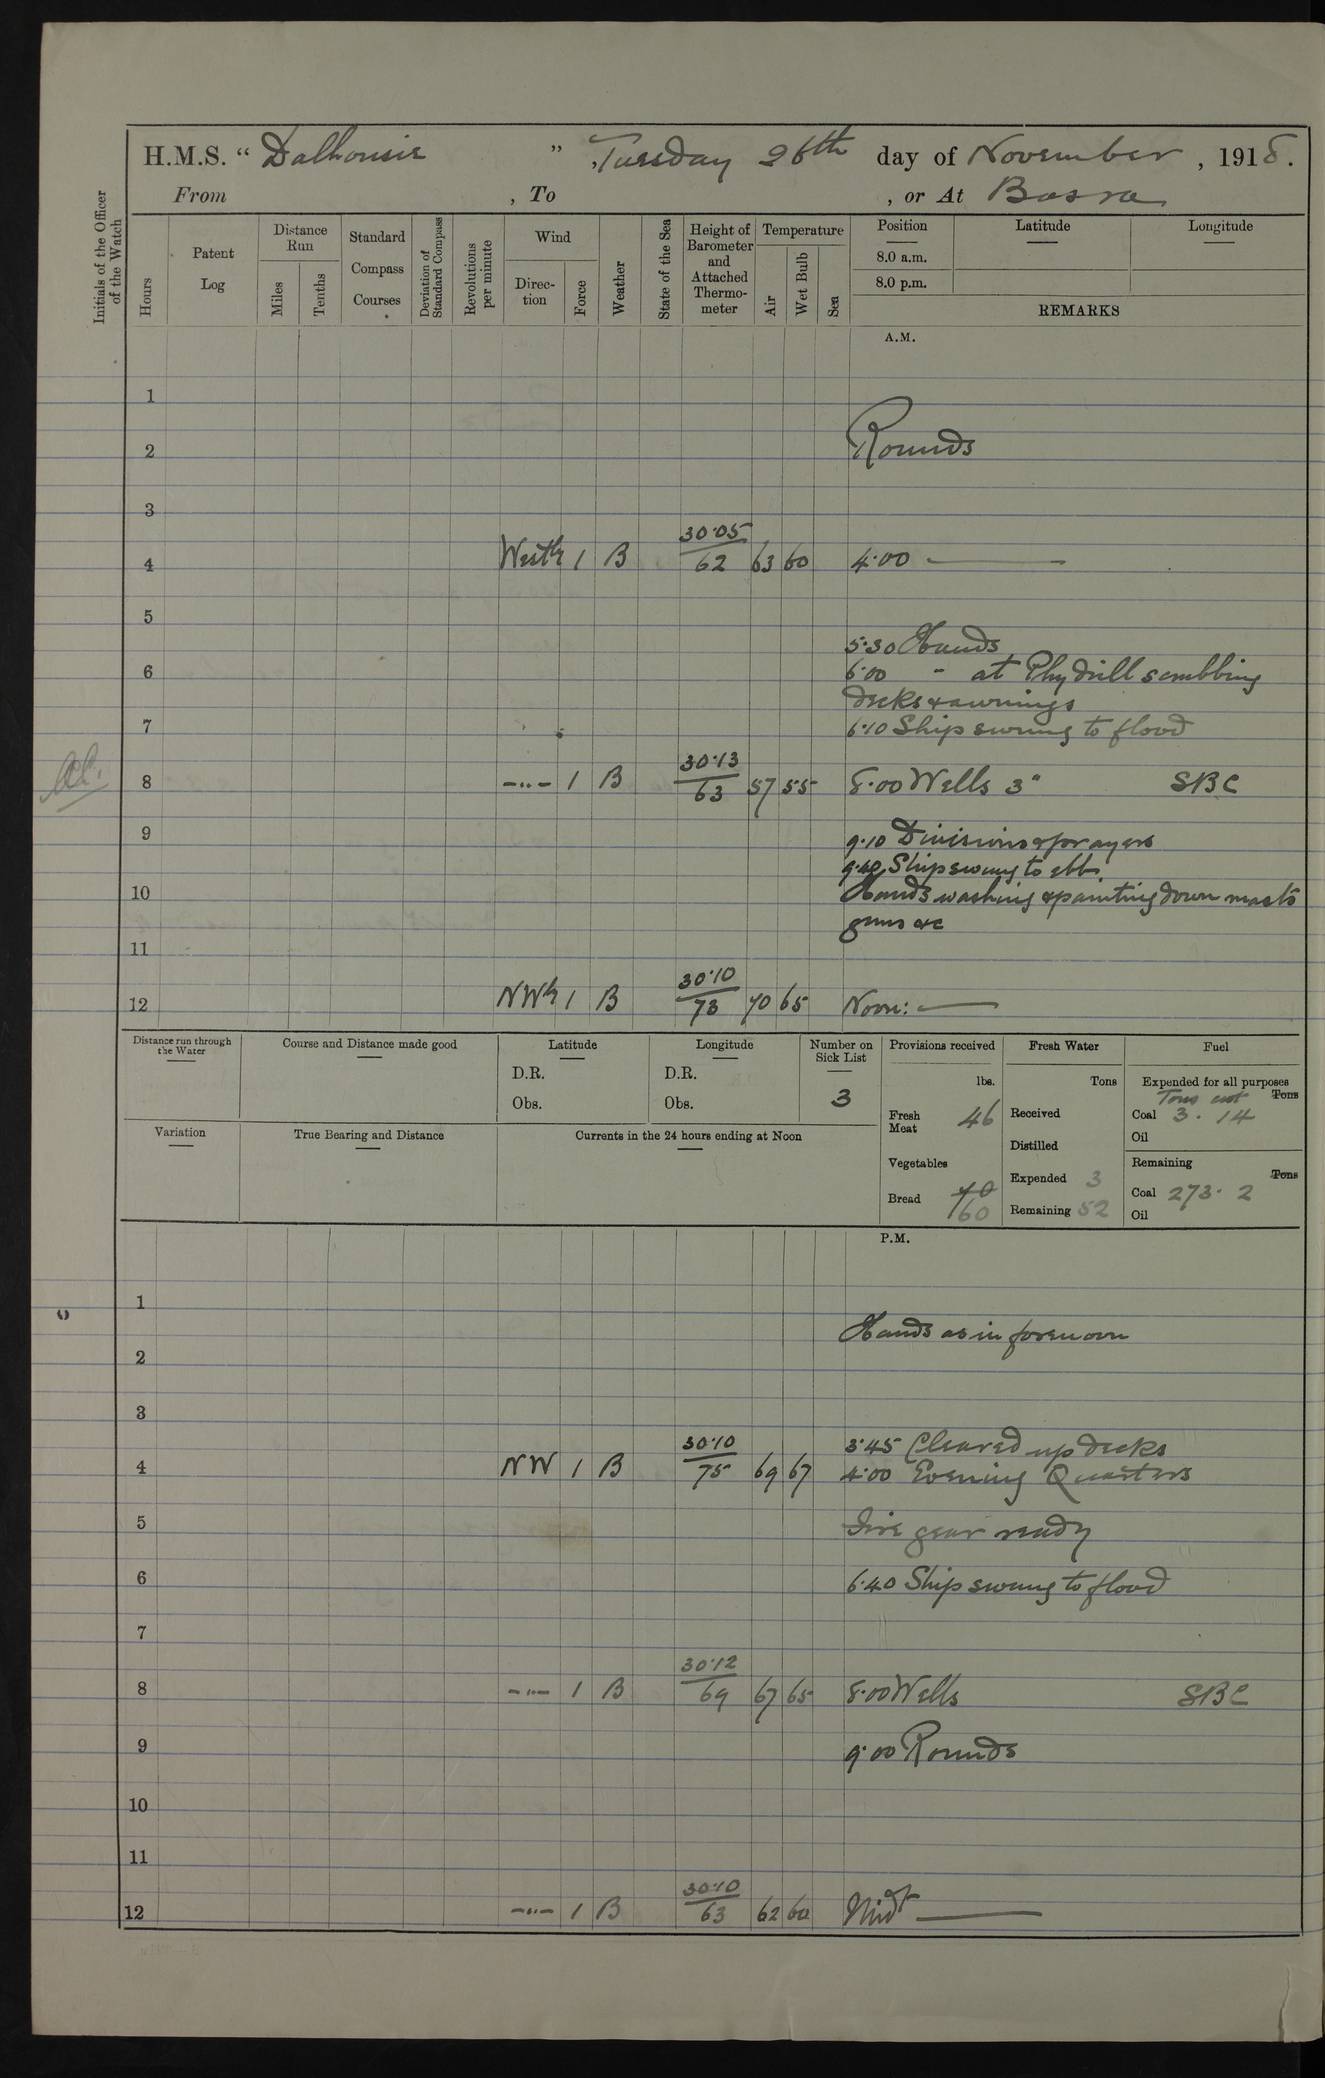 H.M.S. “ Dalhousie ” Tuesday 26th day of November , 1918.
From , To , or At Basra
Initials of the Officer of the Watch
Hours
Patent Log
Distance Run
Miles
Tenths
Standard Compass Courses
Deviation of Standard Compass
Revolutions per minute
Wind
Direction
Force
Weather
State of the Sea
Height of Barometer and Attached Thermometer
Temperature
Air
Wet Bulb
Sea
Position Latitude Longitude
8.0 a.m.
8.0 p.m.
REMARKS
A.M.
1
2 Rounds
3
4 Westly 1 B 30·05/62 63 60 4·00 —
5
5·30 Hands
6 6·00 " at Phy drill scrubbing
decks & awnings
7 6·10 Ship swung to flood
8 -"- 1 B 30·13/63 57 55 8·00 Wells 3" SBC
9 9·10 Divisions & prayers
9·40 Ship swung to ebb.
10 Hands washing & painting down masts
guns &c
11
12 NWly 1 B 30·10/73 70 65 Noon: —
Distance run through the Water
Course and Distance made good
Latitude
D.R.
Obs.
Longitude
D.R.
Obs.
Number on Sick List
3
Provisions received
lbs.
Fresh Meat 46
Vegetables
Bread 70 60
Fresh Water
Tons
Received
Distilled
Expended 3
Remaining 52
Fuel
Expended for all purposes
Tons cwt Tons
Coal 3 · 14
Oil
Remaining
Tons
Coal 273 · 2
Oil
Variation
True Bearing and Distance
Currents in the 24 hours ending at Noon
P.M.
1
Hands as in forenoon
2
3
3·45 Cleared up decks
4 NW 1 B 30·10/75 69 67 4·00 Evening Quarters
5 Fire gear ready
6 6·40 Ship swung to flood
7
8 -"- 1 B 30·12/69 67 65 8·00 Wells SBC
9 9·00 Rounds
10
11
12 -"- 1 B 30·10/63 62 60 Midt —